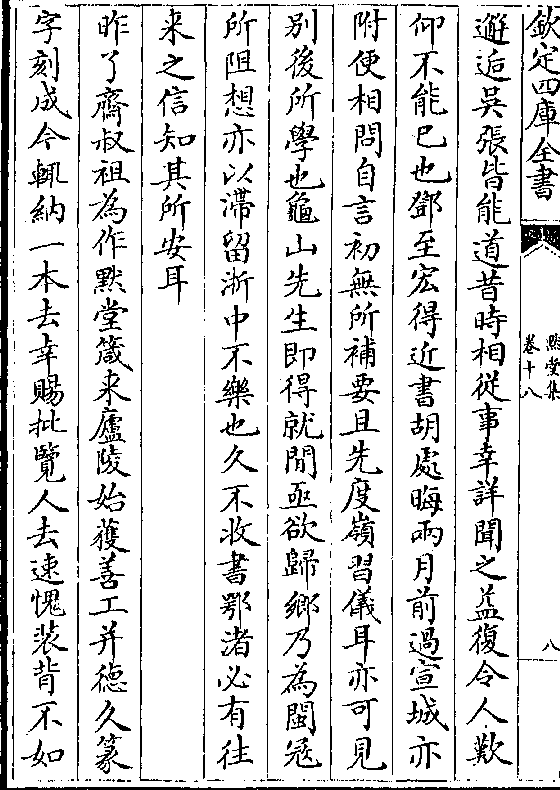 欽定四庫全書
默堂集
卷十八
八
邂逅吳張皆能道昔時相從事幸詳聞之益復令人歎
仰不能已也鄧至宏得近書胡處晦兩月前過宣城亦
附便相問自言初無所補要且先度嶺習儀耳亦可見
別後所學也龜山先生即得就閒亟欲歸鄉乃為閩冦
所阻想亦以滯留浙中不樂也久不收書鄂渚必有往
来之信知其所安耳
昨了齋叔祖為作默堂箴来廬陵始獲善工并德久篆
字刻成今輒納一本去幸賜批覽人去速愧裝背不如